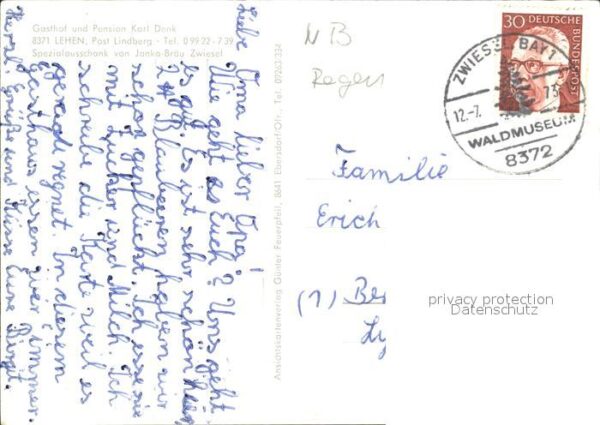 Gasthof und Pension Karl Denk
8371 LEHEN, Post Lindberg - Tel. 0 99 22 - 7 39
Spezialausschank von Janka-Bräu Zwiesel
Liebe Oma lieber Opa!
Wie geht es Euch? Uns geht
es gut. Es ist sehr schön hier
2 Blaubeeren haben wir
schon gepflückt. Ich esse sie
mit Zucker und Milch. Ich
schreibe die Karte weil es
gerade regnet. In diesem
Gasthaus essen wir immer.
Herzl. Grüße und Küsse Eure Birgit.
Ansichtskartenverlag Günter Feuerpfeil, 8641 Ebersdorf/Ofr. Tel. 09262-334
NB
Regen
30 DEUTSCHE
BUNDESPOST
ZWIESEL, BAY 1
12.-7. 73
WALDMUSEUM
8372
Familie
Erich
(1) Ber
privacy protection
Datenschutz